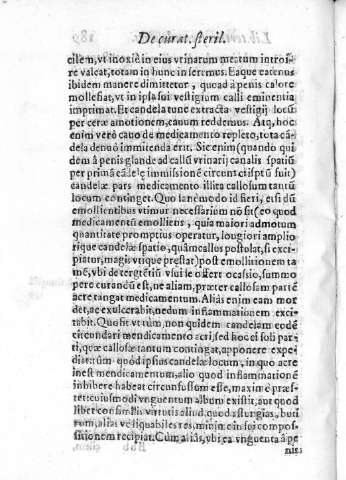 De curat. steril.
cilem, vt inoxiè in eius vrinarum meatum introi-
re valeat, totam in hunc inseremus. Eaque eatenus
ibidem manere dimittetur, quoad à penis calore
mollefiat, vt in ipsa sui vestigium calli eminentia
imprimat. Et candela tunc extracta vestigij locū
per ceræ amotionem, cauum reddemus. Atq, hoc
enim verò cauo de medicamento repleto, tota cā-
dela denuò immittenda erit. Sic enim (quando qui
dem à penis glande ad callū vrinarij canalis spatiū
per primā cādelę immissionē circunscriptū fuit)
candelæ pars medicamento illita callosum tantū
locum continget. Quo sanè modo id fieri, etsi dū
emollientibus vtimur necessarium nō sit (eo quod
medicamentū emolliens, quia maiori admotum
quantitate promptius operatur, longiori amplio
rique candelæ spatio, quàm callus postulat, si exci-
piatur, magis vtique præstat) post emollitionem ta
mē, vbi detergētiū vsui se offert ocassio, summo
pere curandū est, ne aliam, præter callosam partē
acre tangat medicamentum. Aliàs enim eam mor
det, ac exulcerabit, nedum inflammationem exci-
tabit. Quo fit vt tūm, non quidem candelam eodē
circundari mendicamento acri, sed hoc ei soli par-
ti, quæ callosē tantum contingat, apponere expe-
diat: tūm quòd ipsius candelæ locum, in quo acre
inest medicamentum, alio quod inflammationē
inhibere habeat circunfusum esse, maximè præs-
tet: cuiusmodi vnguentum album existit, aut quod
libet consimilis virtutis aliud. quod axungias, buti
rum, aliasve liquabiles res, minimè in sui compos-
sitionem recipiat. Cùm aliàs, vbi ea vnguenta à pe
nis